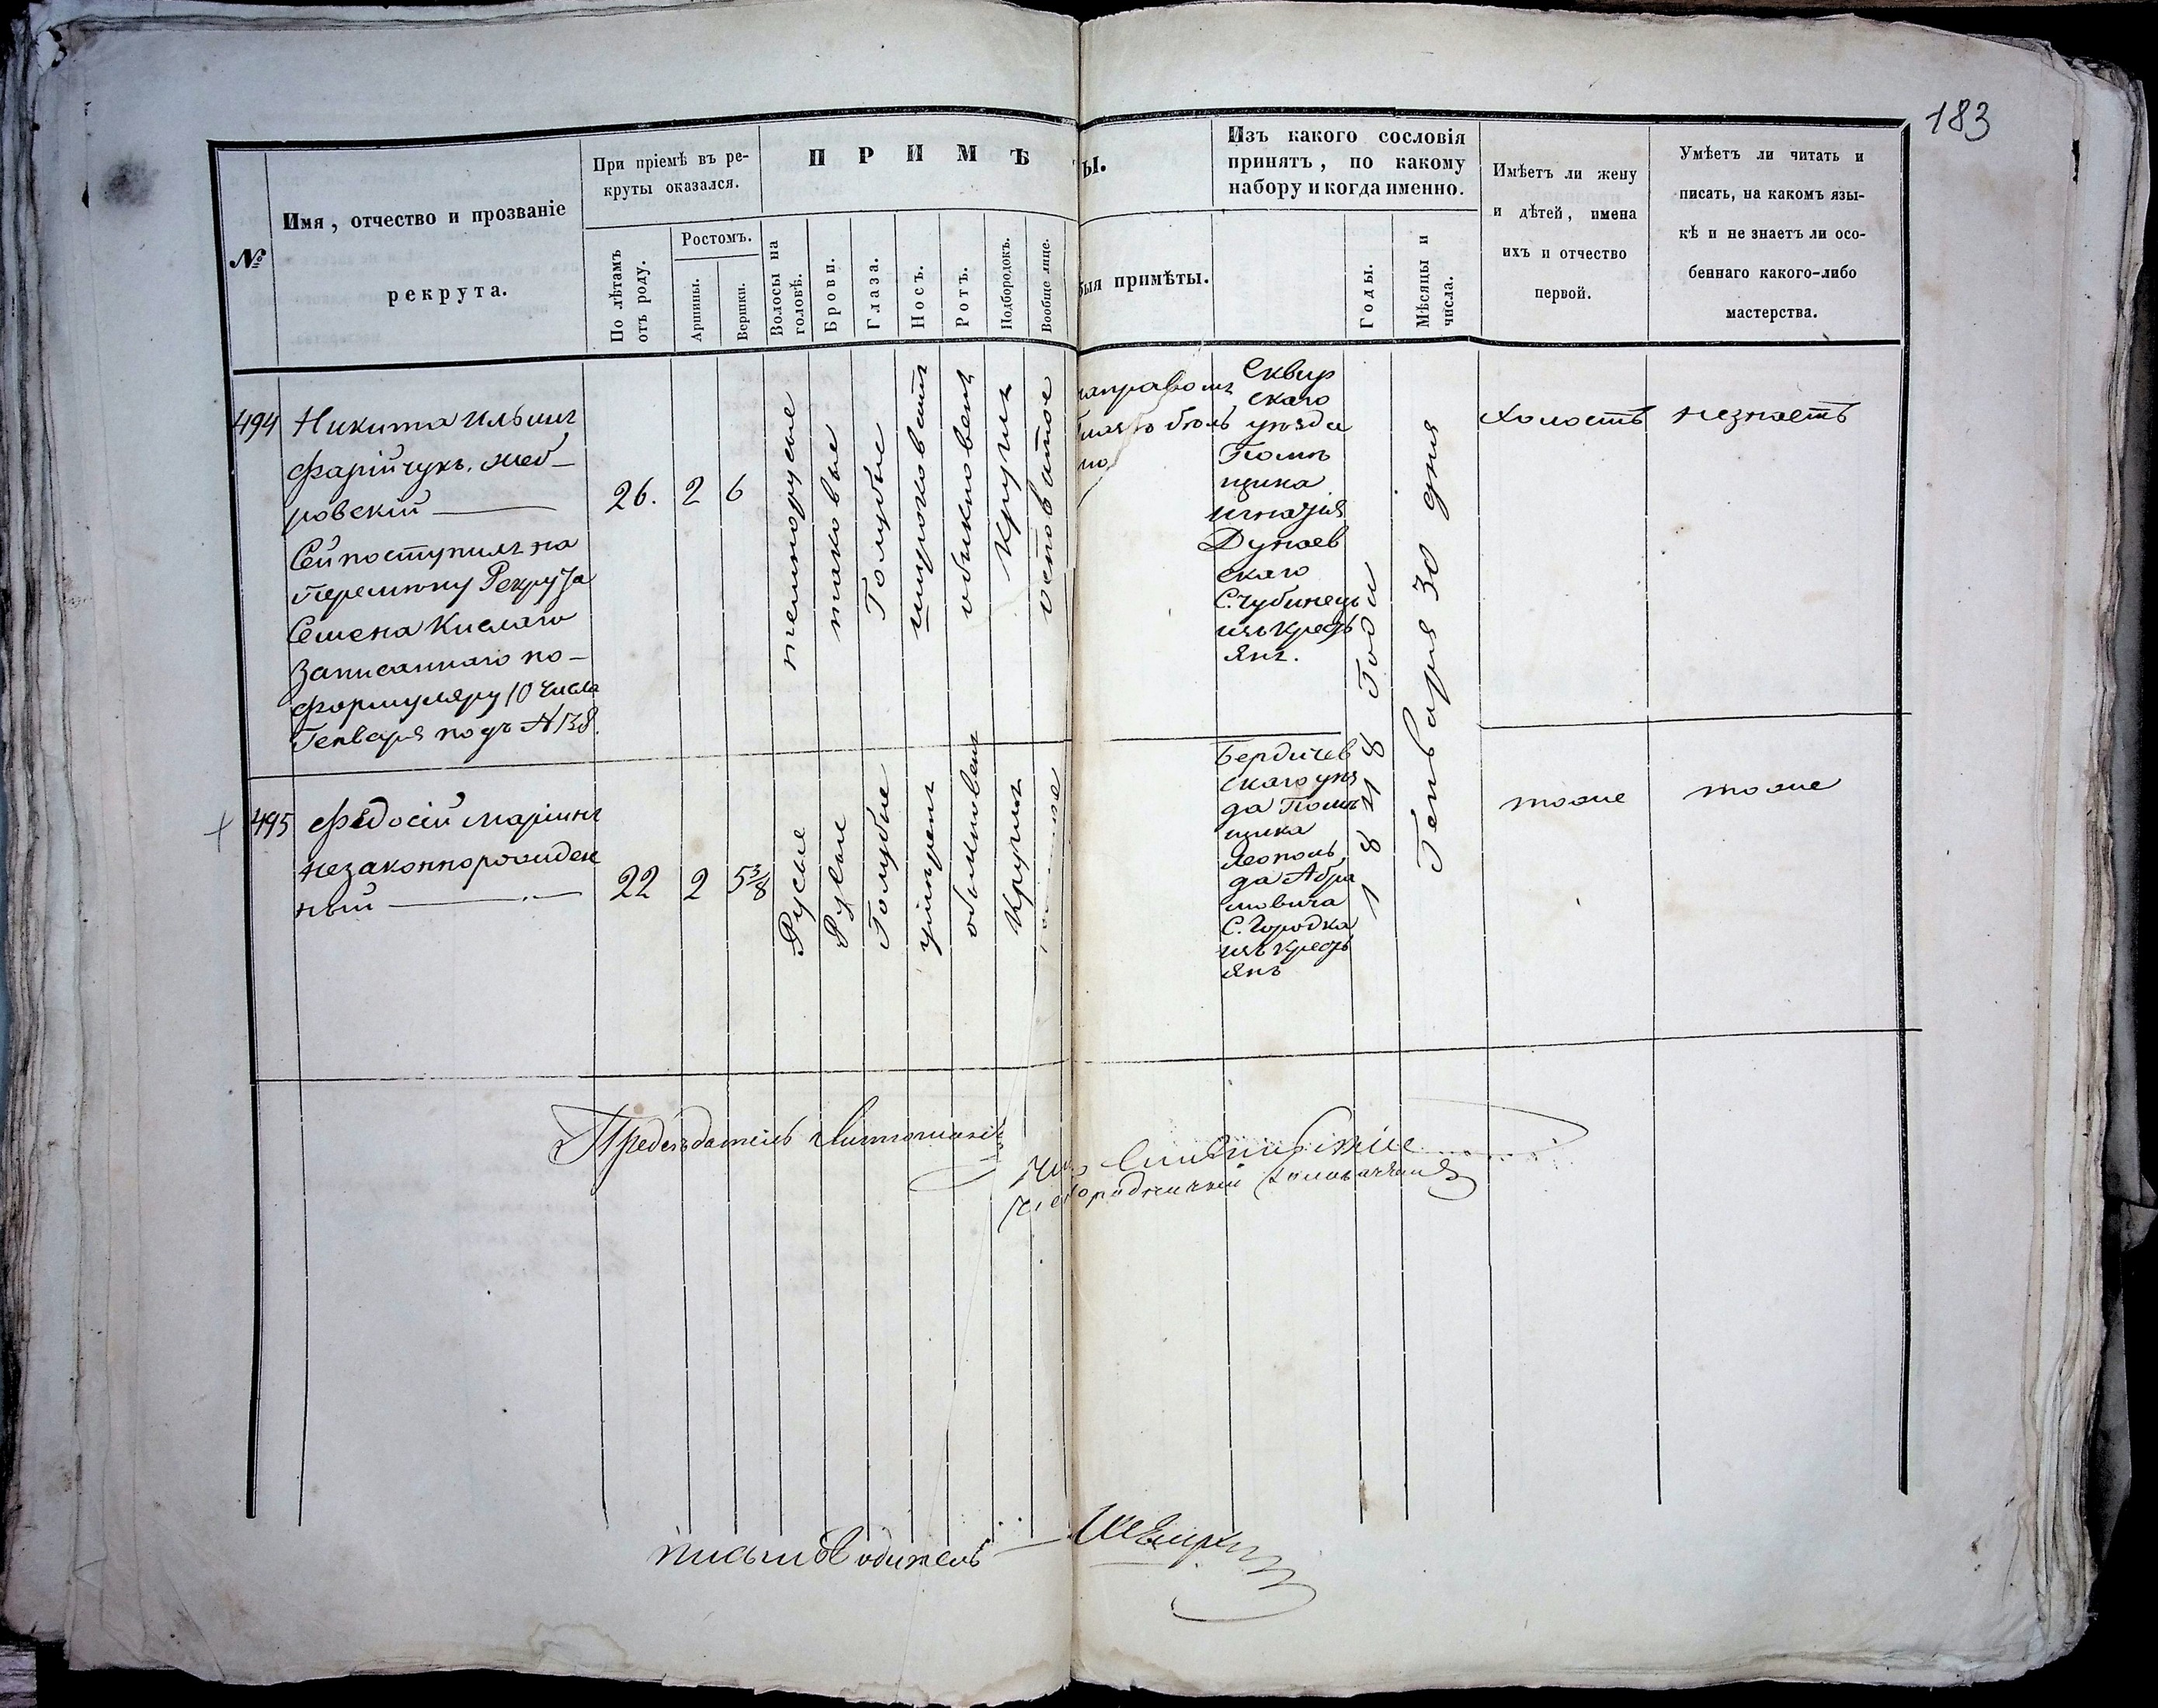 183
№
Имя, отчество и прозваніе
рекрута.
При пріемѣ въ ре-
круты оказался.
По лѣтамъ
отъ роду.
Ростомъ.
Аршины.
Вершки.
ПРИМѢ
ы.
Волосы на
головѣ.
Брови.
Глаза.
Носъ.
Ротъ.
Подбородокъ.
Вообще лице.
быя примѣты.
Изъ какого сословія
принятъ, по какому
набору и когда именно.
Годы.
Мѣсяцы и
числа.
Имѣетъ ли жену
и дѣтей, имена
ихъ и отчество
первой.
Умѣетъ ли читать и
писать, на какомъ язы-
кѣ и не знаетъ ли осо-
беннаго какого-либо
мастерства.
494
Никита Ильинъ
Фарійчукъ. Жеб-
ровскій
Сей поступилъ на
перемѣну Рекрута
Семена Кислаго
Записаннаго по-
формуляру 10 числа
Генваря подъ № 138.
26.
2
6
темнорусые
таковые
Голубые
широковатъ
обыкновенъ
Круглъ
осповатое
направомъ
но
Сквир
скаго
уѣзда
Помѣ
щика
Игнатія
Дунаев
скаго
С. Чубинець
изъ Кресть
янъ.
1848 Года
Генваря 30 дня
Холостъ
незнаетъ
495
Федосій Маріинъ
незаконнорожден
ный
22
2
5 3/8
Русые
Русые
Голубые
умѣренъ
обыкновенъ
Круглъ
Бердичев
скаго уѣз
да Помѣ
щика
Леополь
да Абра
мовича
С. Городка
изъ Кресть
янъ
тоже
тоже
Предсѣдатель
Письмоводитель